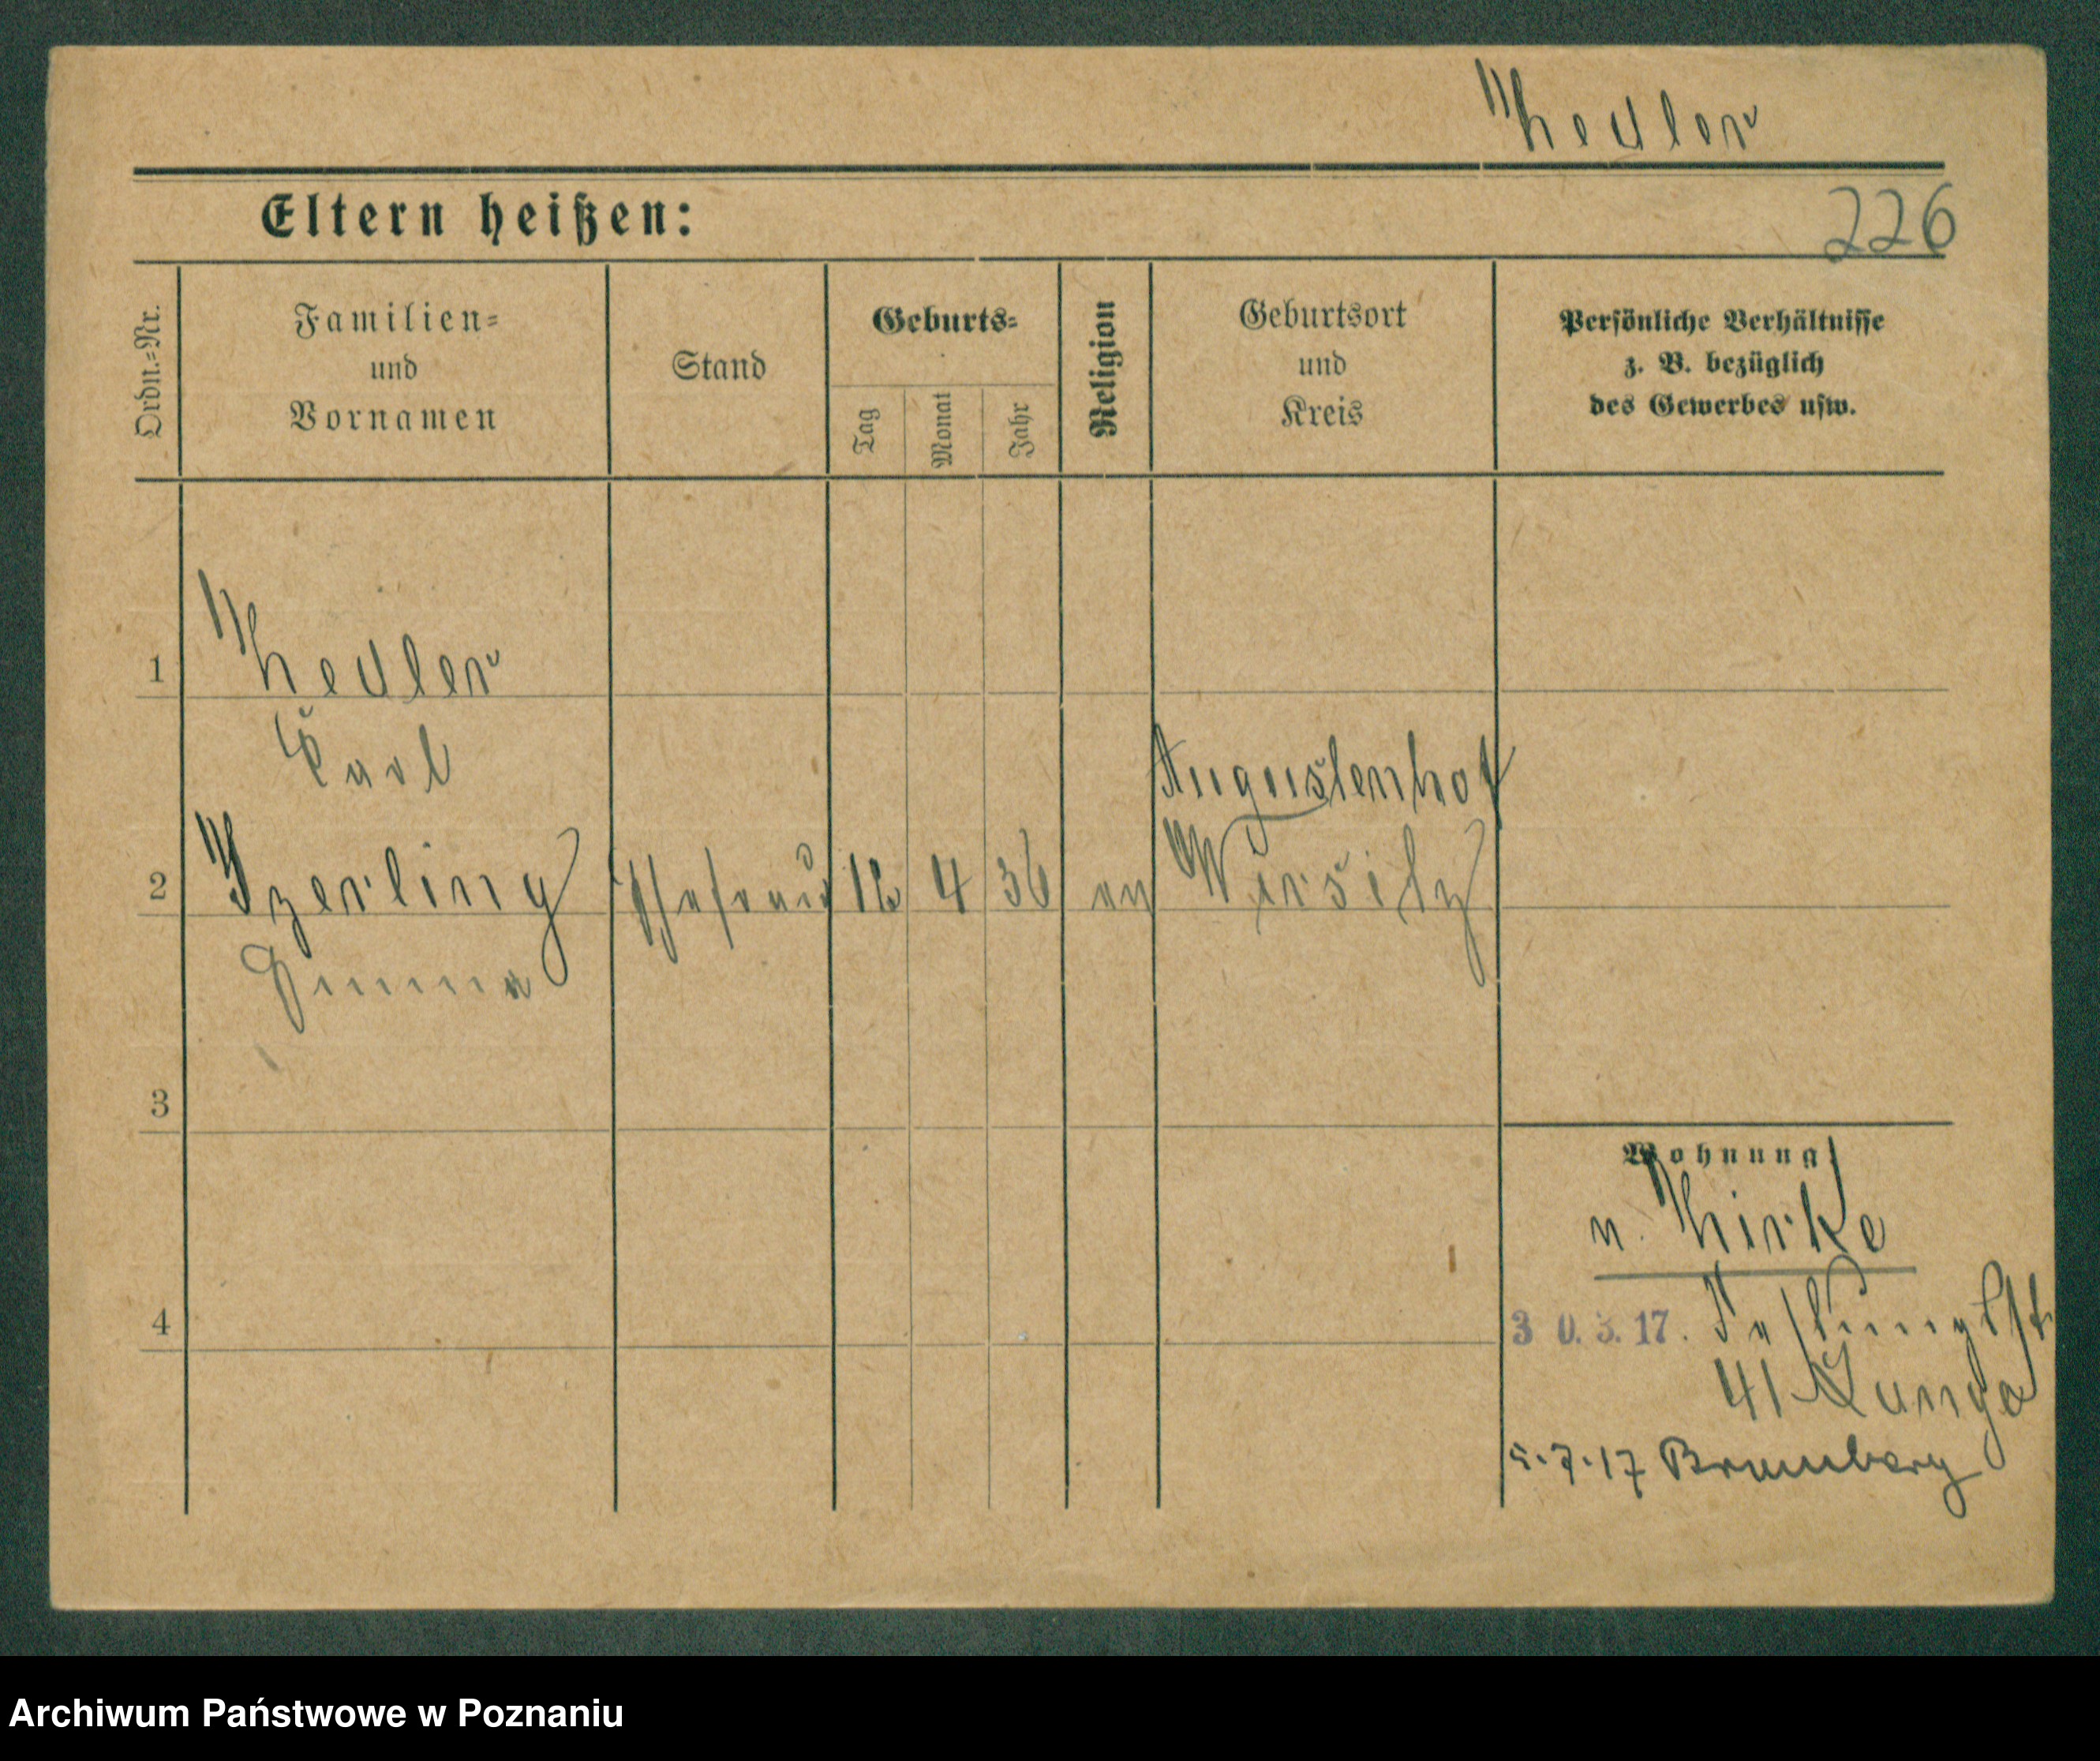 Hedler
Eltern heißen:
226
Ordn.=Nr.
Familien=
und
Vornamen
Stand
Geburts=
Tag
Monat
Jahr
Religion
Geburtsort
und
Kreis
Persönliche Verhältnisse
z. B. bezüglich
des Gewerbes usw.
1
Hedler
Carl
2
Yzerling
Emma
Ehefrau
4
36
ev
Augustenhof
Wirsitz
3
4
Wohnung
30.5.17.
41 Lange
5.7.17 Bromberg
Archiwum Państwowe w Poznaniu